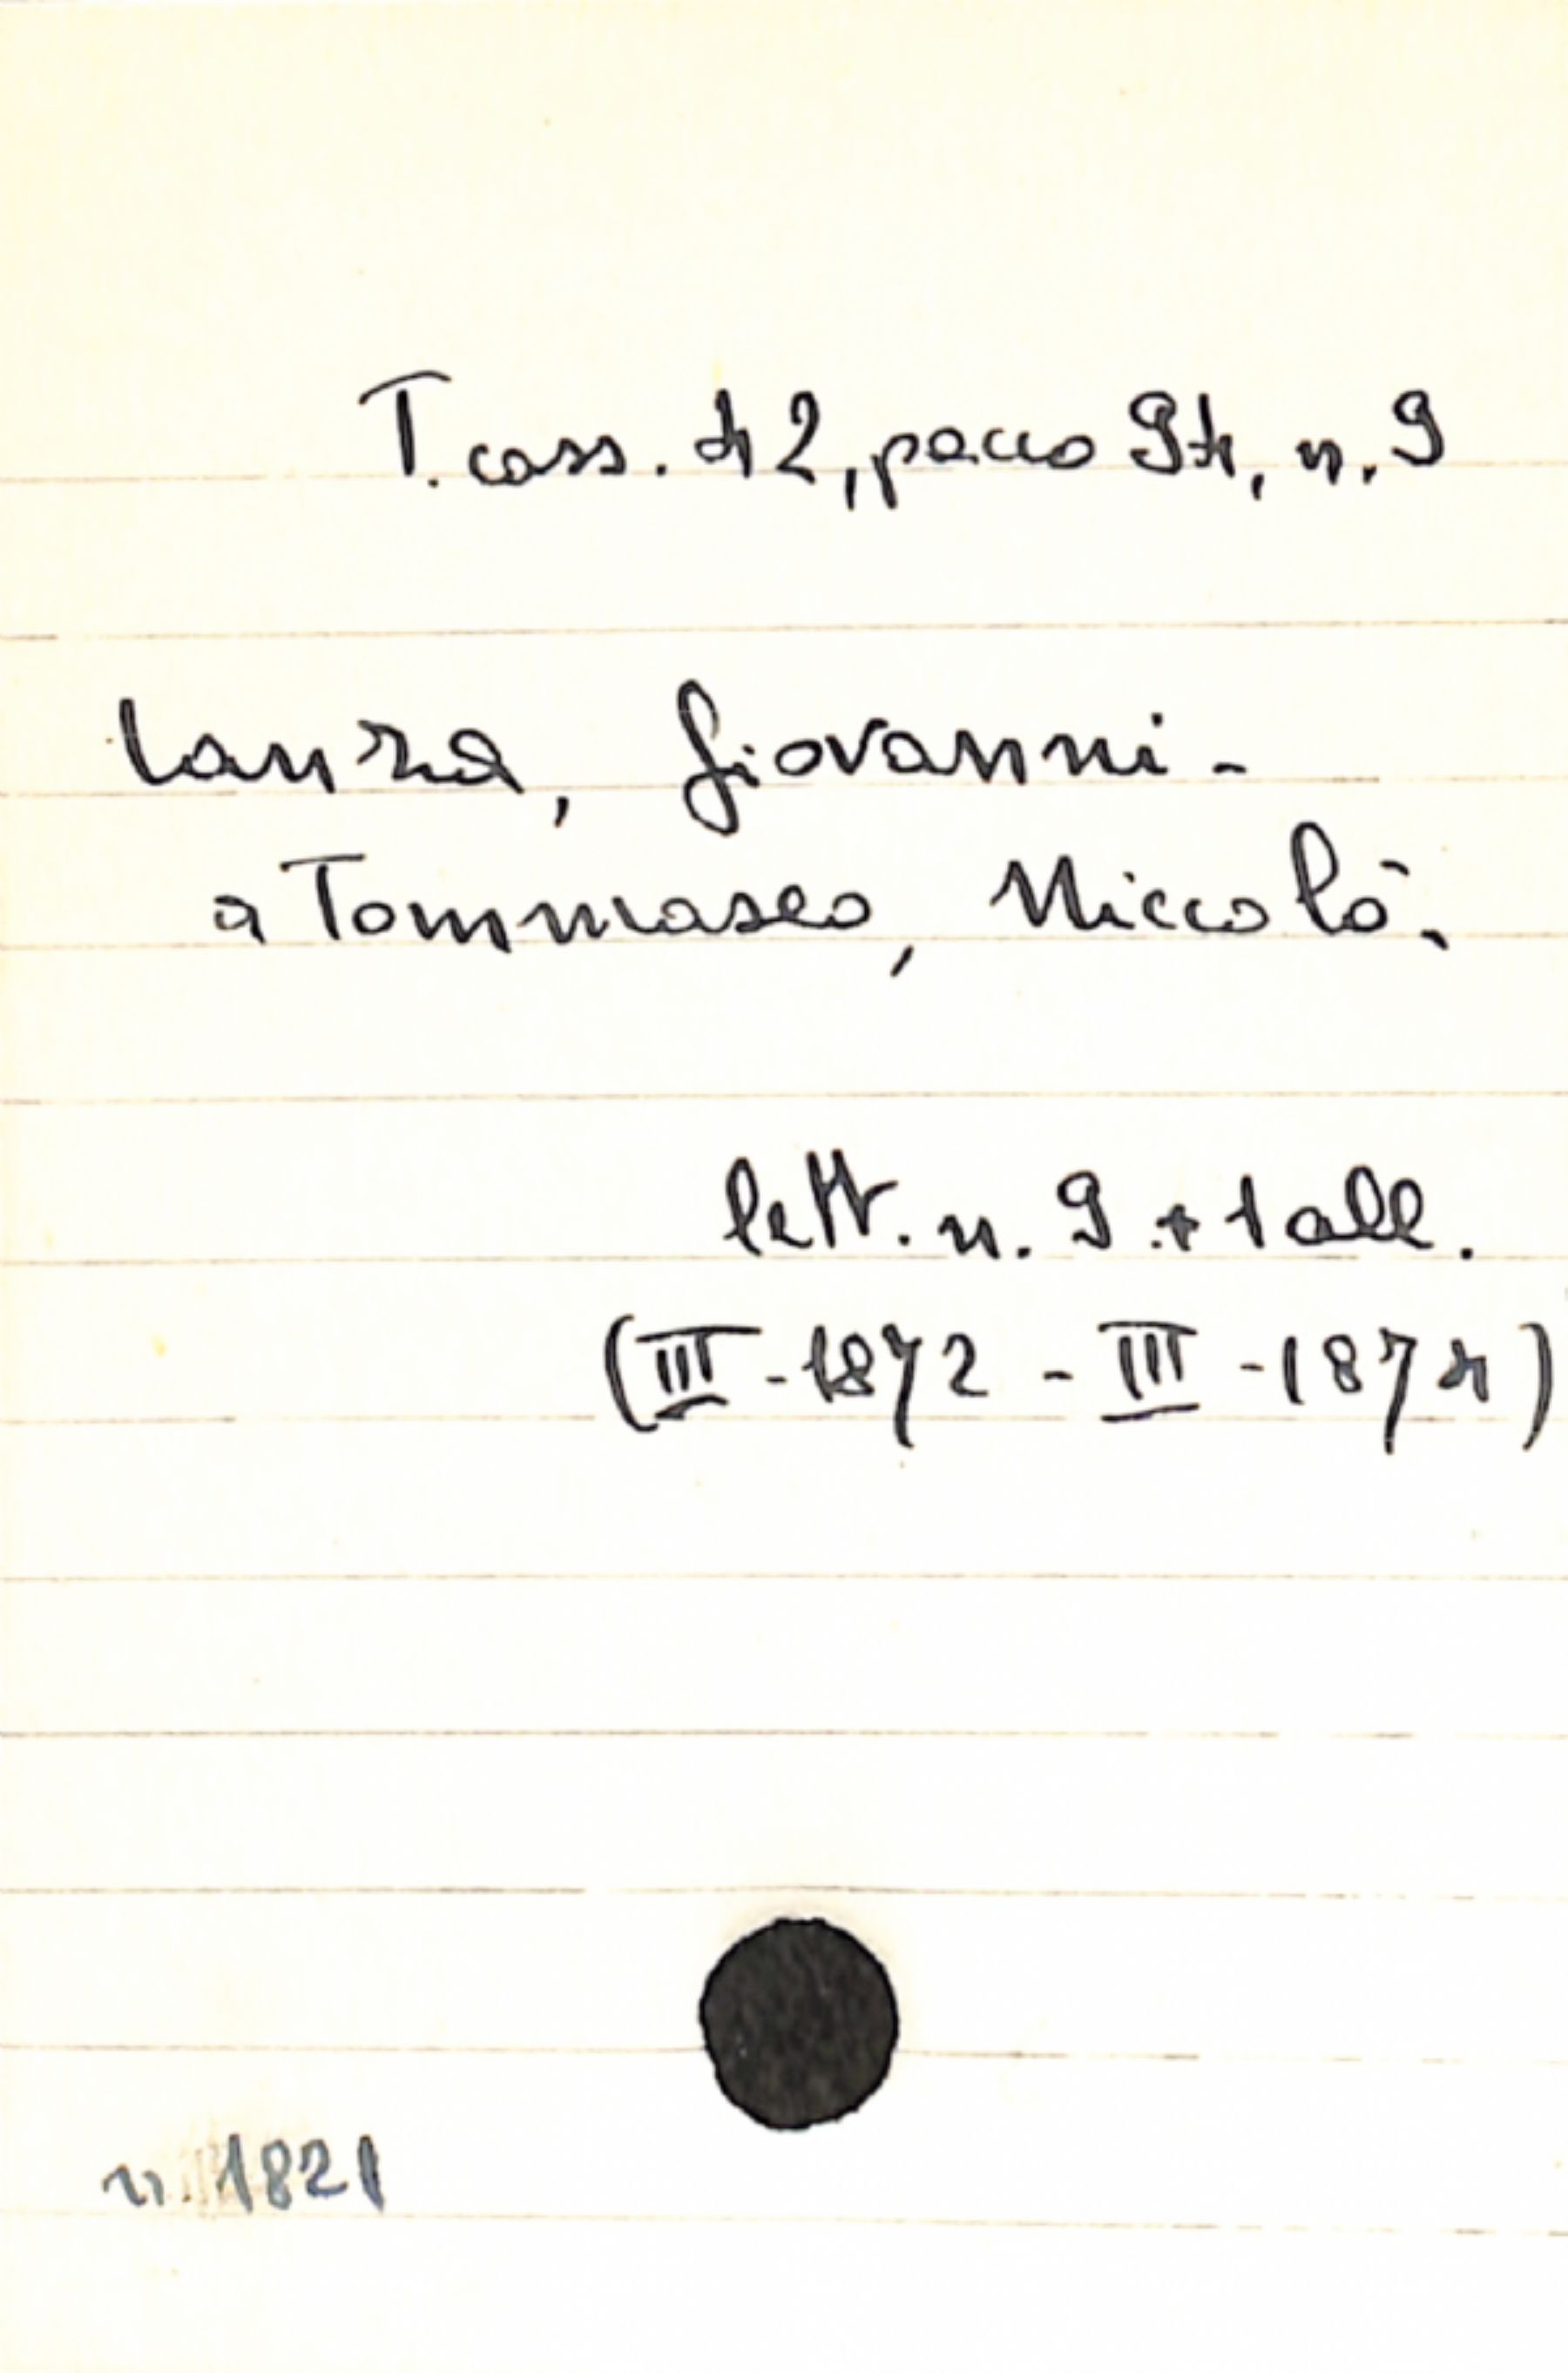 T. cass. 42, pacco 94, n. 9
Lanza, Giovanni -
a Tommaseo, Niccolò.
lett. n. 9 + 1 all.
(III - 1872 - III - 1874)
n. 1821